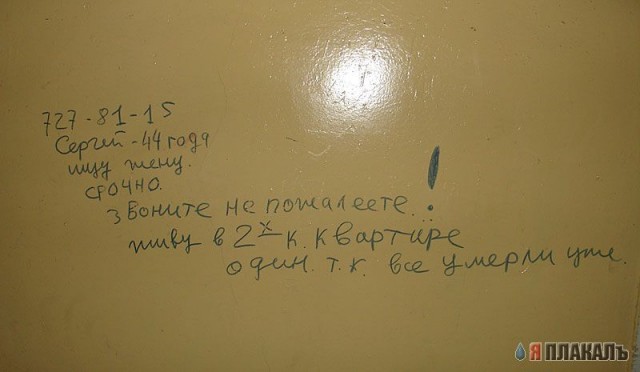 727-81-15
Сергей - 44 года
ищу жену.
СРОЧНО.
Звоните не пожалеете..!
живу в 2х к. квартире
один. т.к. все умерли уже.
Я ПЛАКАЛЪ